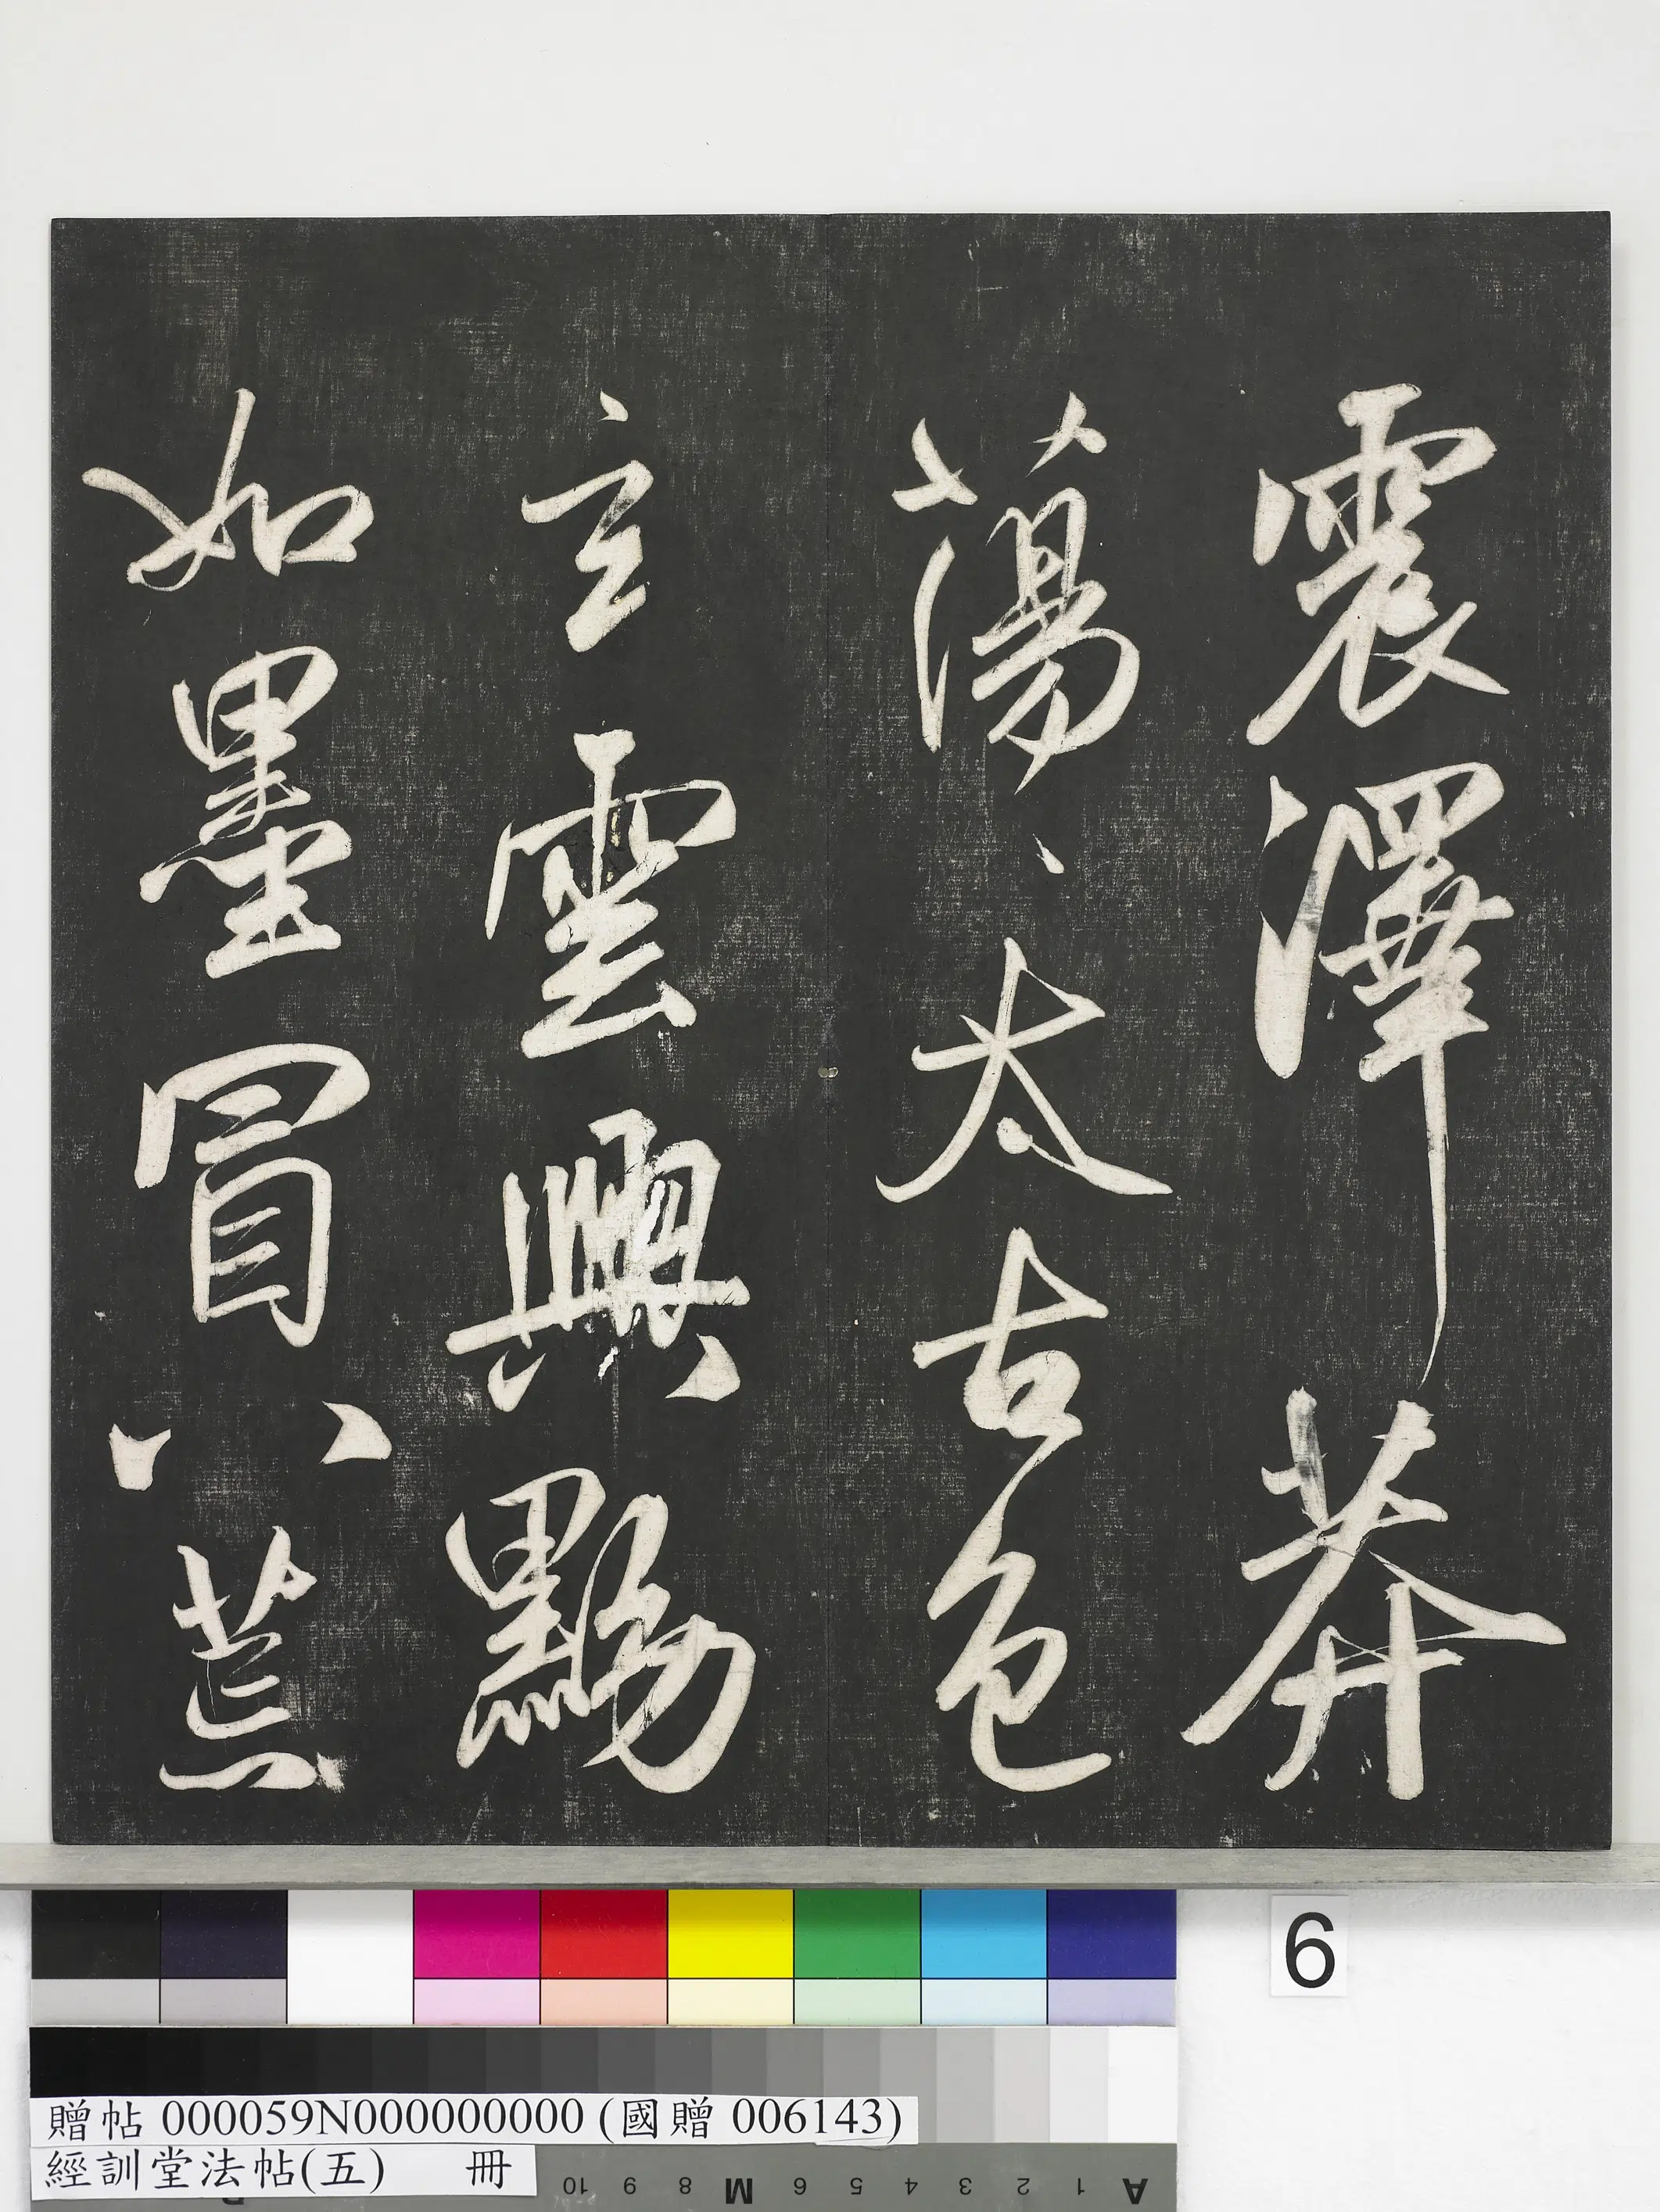 震澤莽
蕩、太古色
玄雲興黝
如墨冒八荒
6
贈帖 000059N000000000 (國贈 006143)
經訓堂法帖(五) 冊
A 1 2 3 4 5 6 M 8 9 10